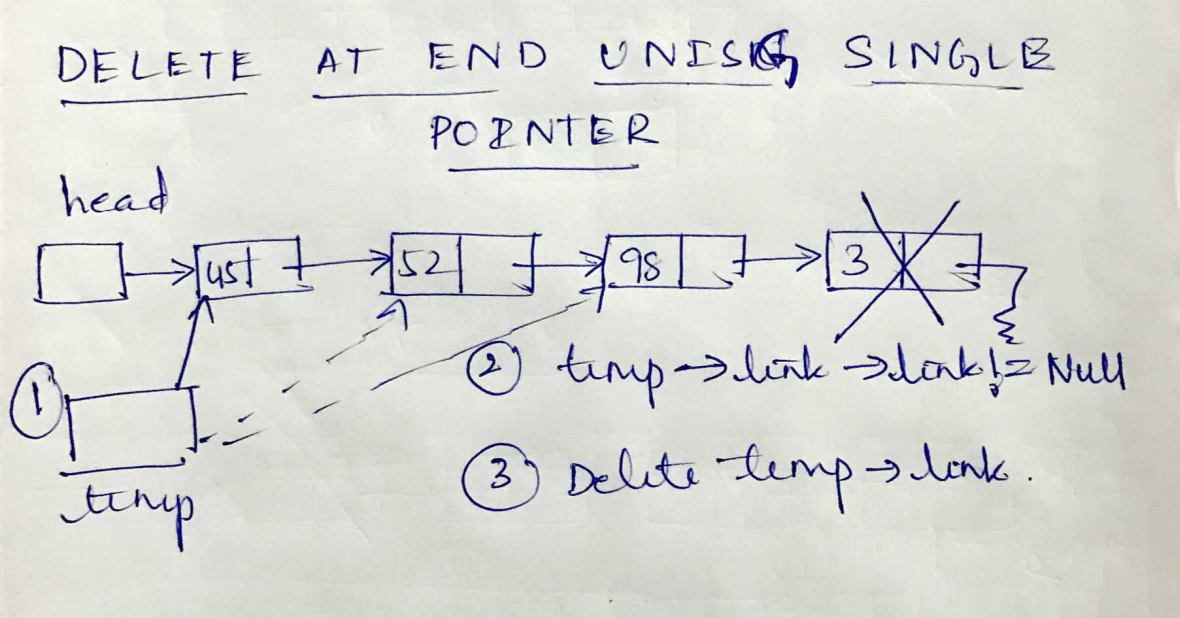 DELETE AT END UNISG SINGLE
POINTER
head
45 52 98 3
1
2 temp → link → link != Null
3 Delete temp → link.
temp